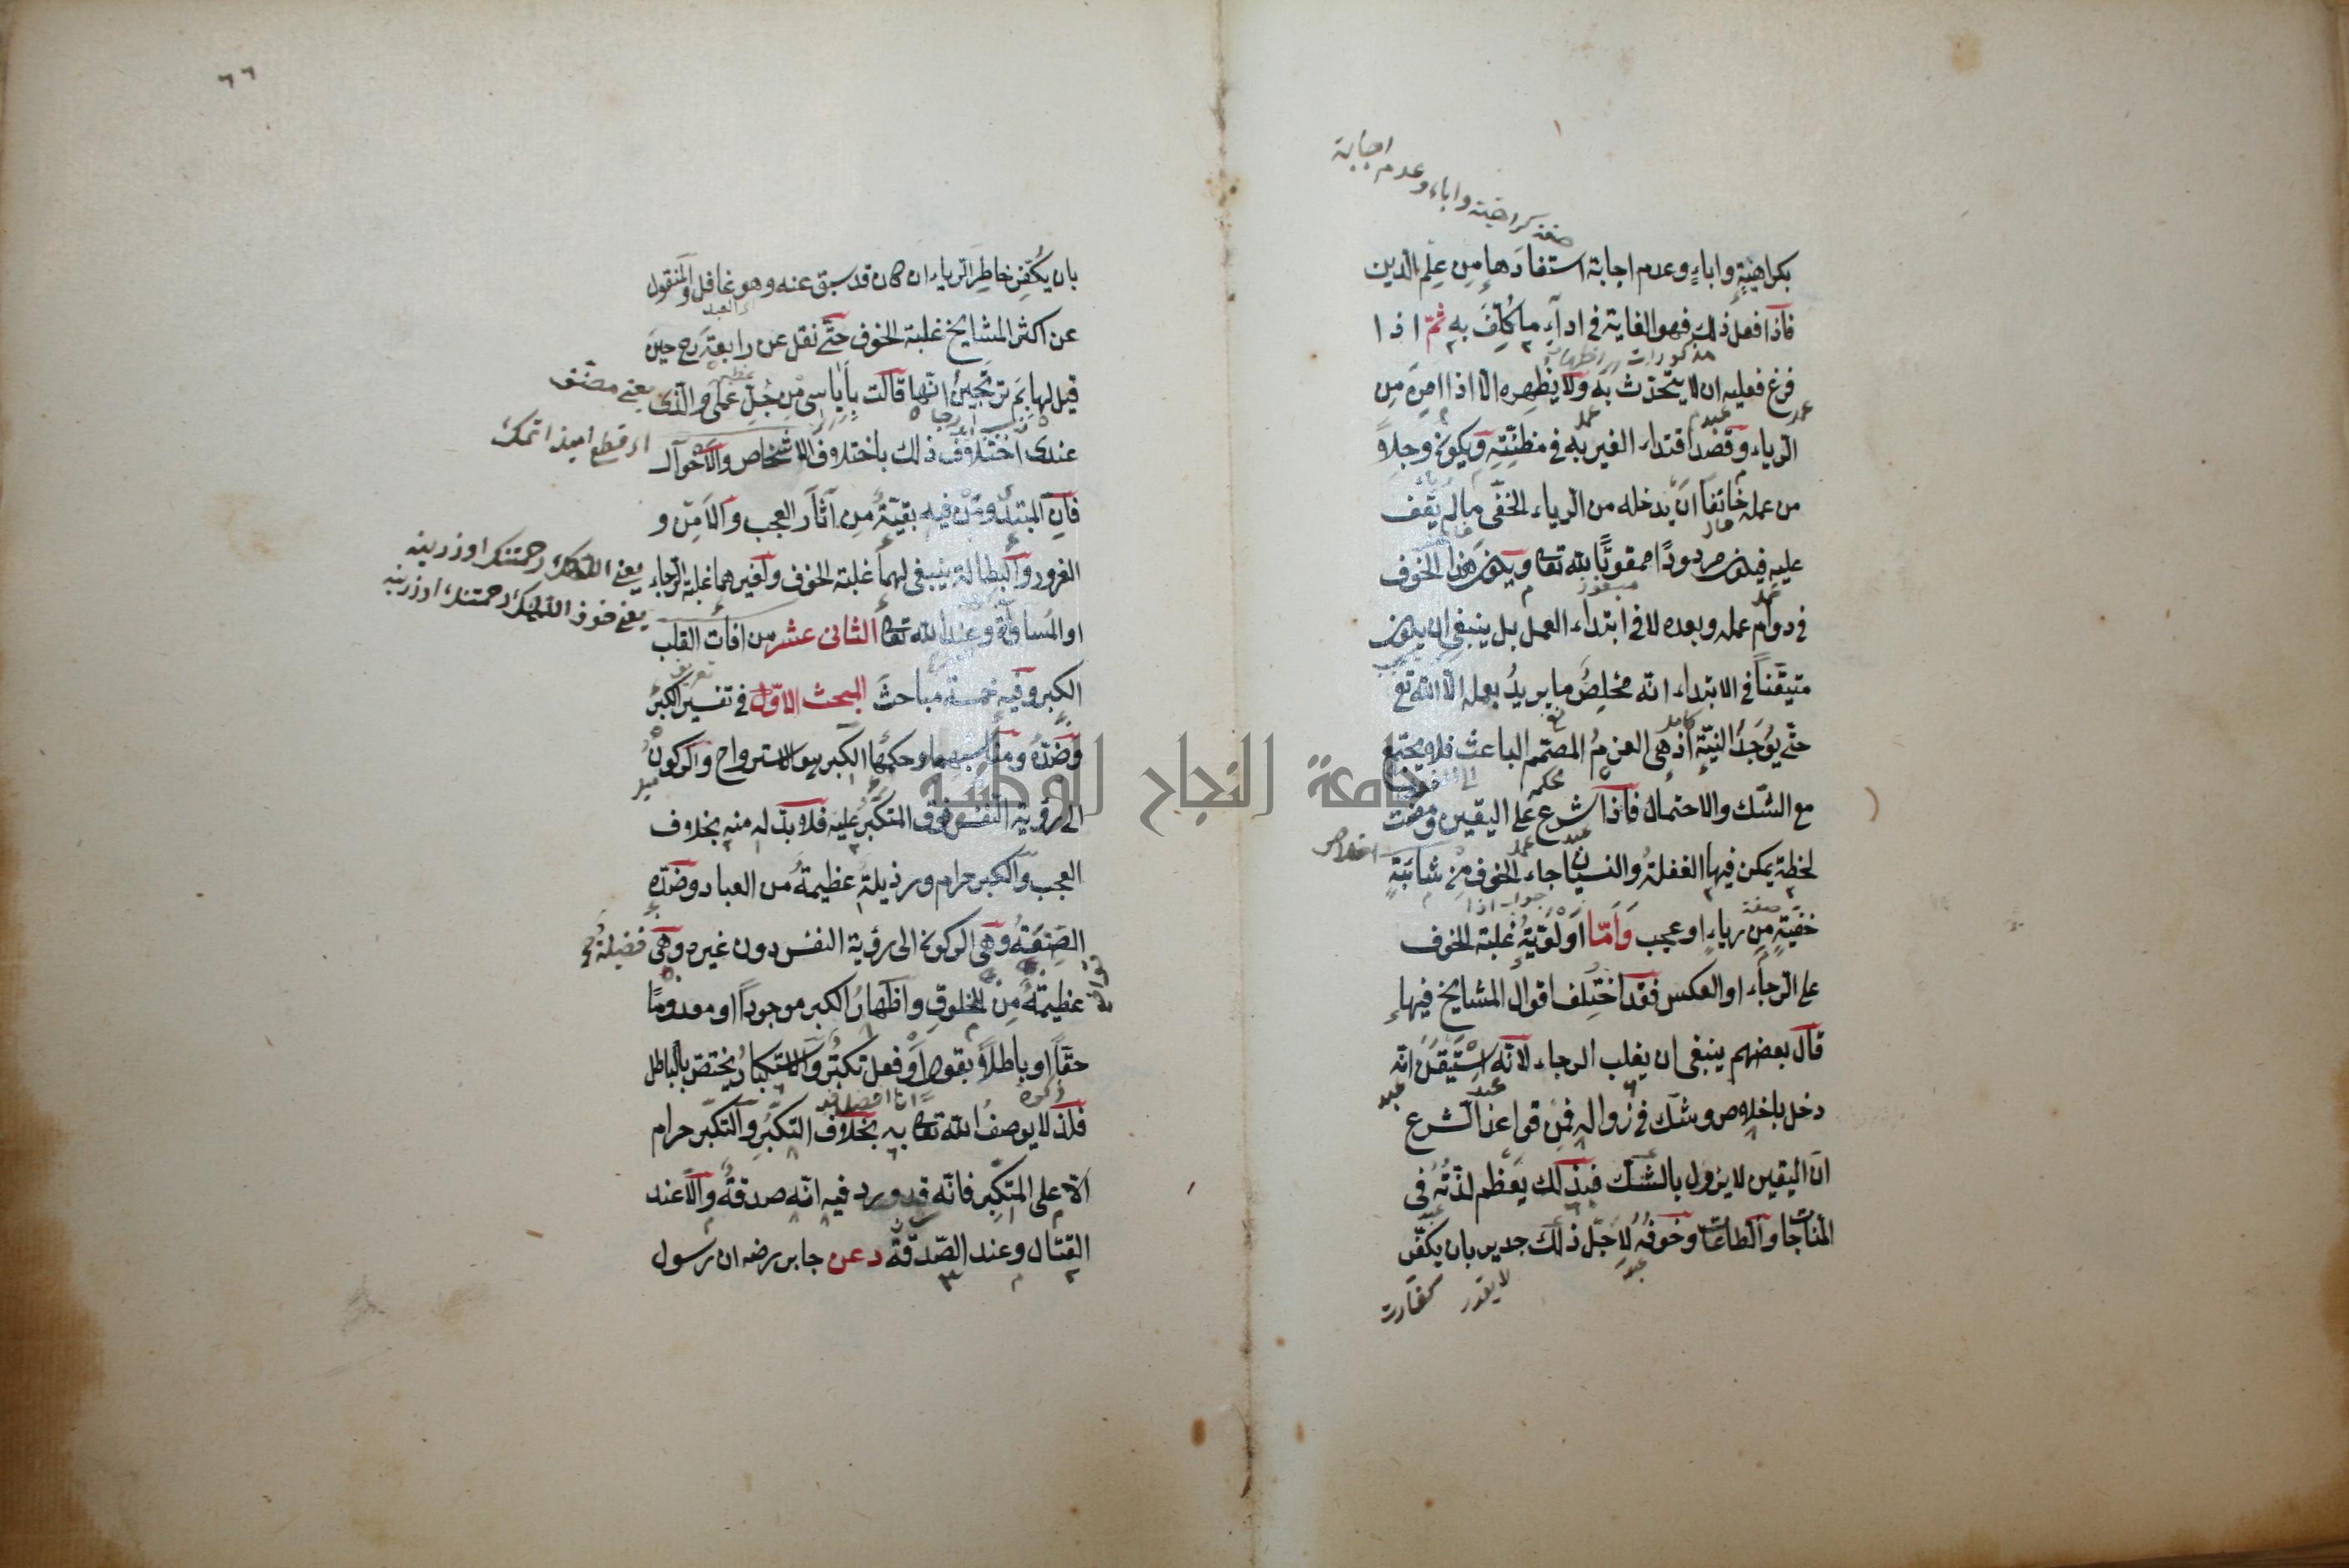 بكراهيةٍ واباءٍ وعدم اجابة استفادها من علم الدين
فاذا فعل ذلك فهو الغاية فى اداءِ ما كُلِّفَ به ثمّ اذا
فرغ فعليه ان لا يتحدّث به ولا يظهره الّا اذا امِنَ من
الرياء وقصد اقتداء الغير به فى مظنّته ويكون وجلاً
من عمله خائفاً ان يدخله من الرياء الخفى ما لم يقف
عليه فيكون مردودًا ممقوتًا لله تعا ويكون هذا الخوف
فى دوام عمله وبعده لا فى ابتداء العمل بل ينبغى ان يكون
متيقّناً فى الابتداء انّه مخلصٌ ما يريدُ بعمله الّا الله تع
حتّى يُوجَدَ النيّة اذ هى العزمُ المصمّم الباعث فلا يجتمع
مع الشك والاحتمال فاذا شرع على اليقين ومضت
لحظة يمكن فيها الغفلةُ والنسيان جاء الخوف من شائبةٍ
خفيّةٍ من رياءٍ او عجب وَامّا اولويّةُ غلبة الخوف
على الرجاء او العكس فقد اختلف اقوال المشايخ فيها
قال بعضهم ينبغى ان يغلب الرجاء لانّه استيقن انّه
دخل باخلاص وشك فى زواله فمن قواعد الشرع
ان اليقين لا يزول بالشك فبذلك يعظم لذّتُه فى
المناجات والطاعات وخوفُه لاجل ذلك جدير بان يكفّر
صفة كراهية واباء وعدم اجابة
اخلاص
لا يقدر
كفارت
٦٦
بان يُكفّر خاطر الرياء ان كان قد سبق عنه وهو غافل والمنقول
عن اكثر المشايخ غلبة الخوف حتّى نقل عن رابعة رح حين
قيل لها بِمَ ترتجين انّها قالت بِاَياسى من جُلِّ عملى والّذى
عندى اختلاف ذلك باختلاف الاشخاص والاحوال
فانّ المبتدى ومَن فيه بقيّةٌ من آثار العجب والامن و
الغرور والبطالة ينبغى لهما غلبة الخوف ولغيرهما غلبة الرجاء
او المساواة وعند الله تعا الثانى عشر من افات القلب
الكبر وفيه خمسة مباحث المبحث الاوّل فى تفسير الكبر
وضدّه ومناسبهما وحكمها الكبر هو الاسترواح والركون
الى رؤية النفس فوق المتكبّر عليه فلا بدّ له منه بخلاف
العجب والكبر حرام ورذيلة عظيمةٌ من العباد وضدّه
الضِعَةُ وهى الركون الى رؤية النفس دون غيره وهى فضيلة
عظيمةٌ من المخلوق واظهارُ الكبر موجوداً او معدومًا
حقّاً او باطلاً بقول اَوْ فعل تكبّرٌ والاستكبارُ يختصّ بالباطل
فلذا لا يوصفُ الله تعا به بخلاف التكبّر والتكبّر حرام
الّا على المتكبّر فانّه قد ورد فيه انّه صدقةٌ والّا عند
القتال وعند الصّدقة د عن جابر رضه ان رسول
يعنى مصنف